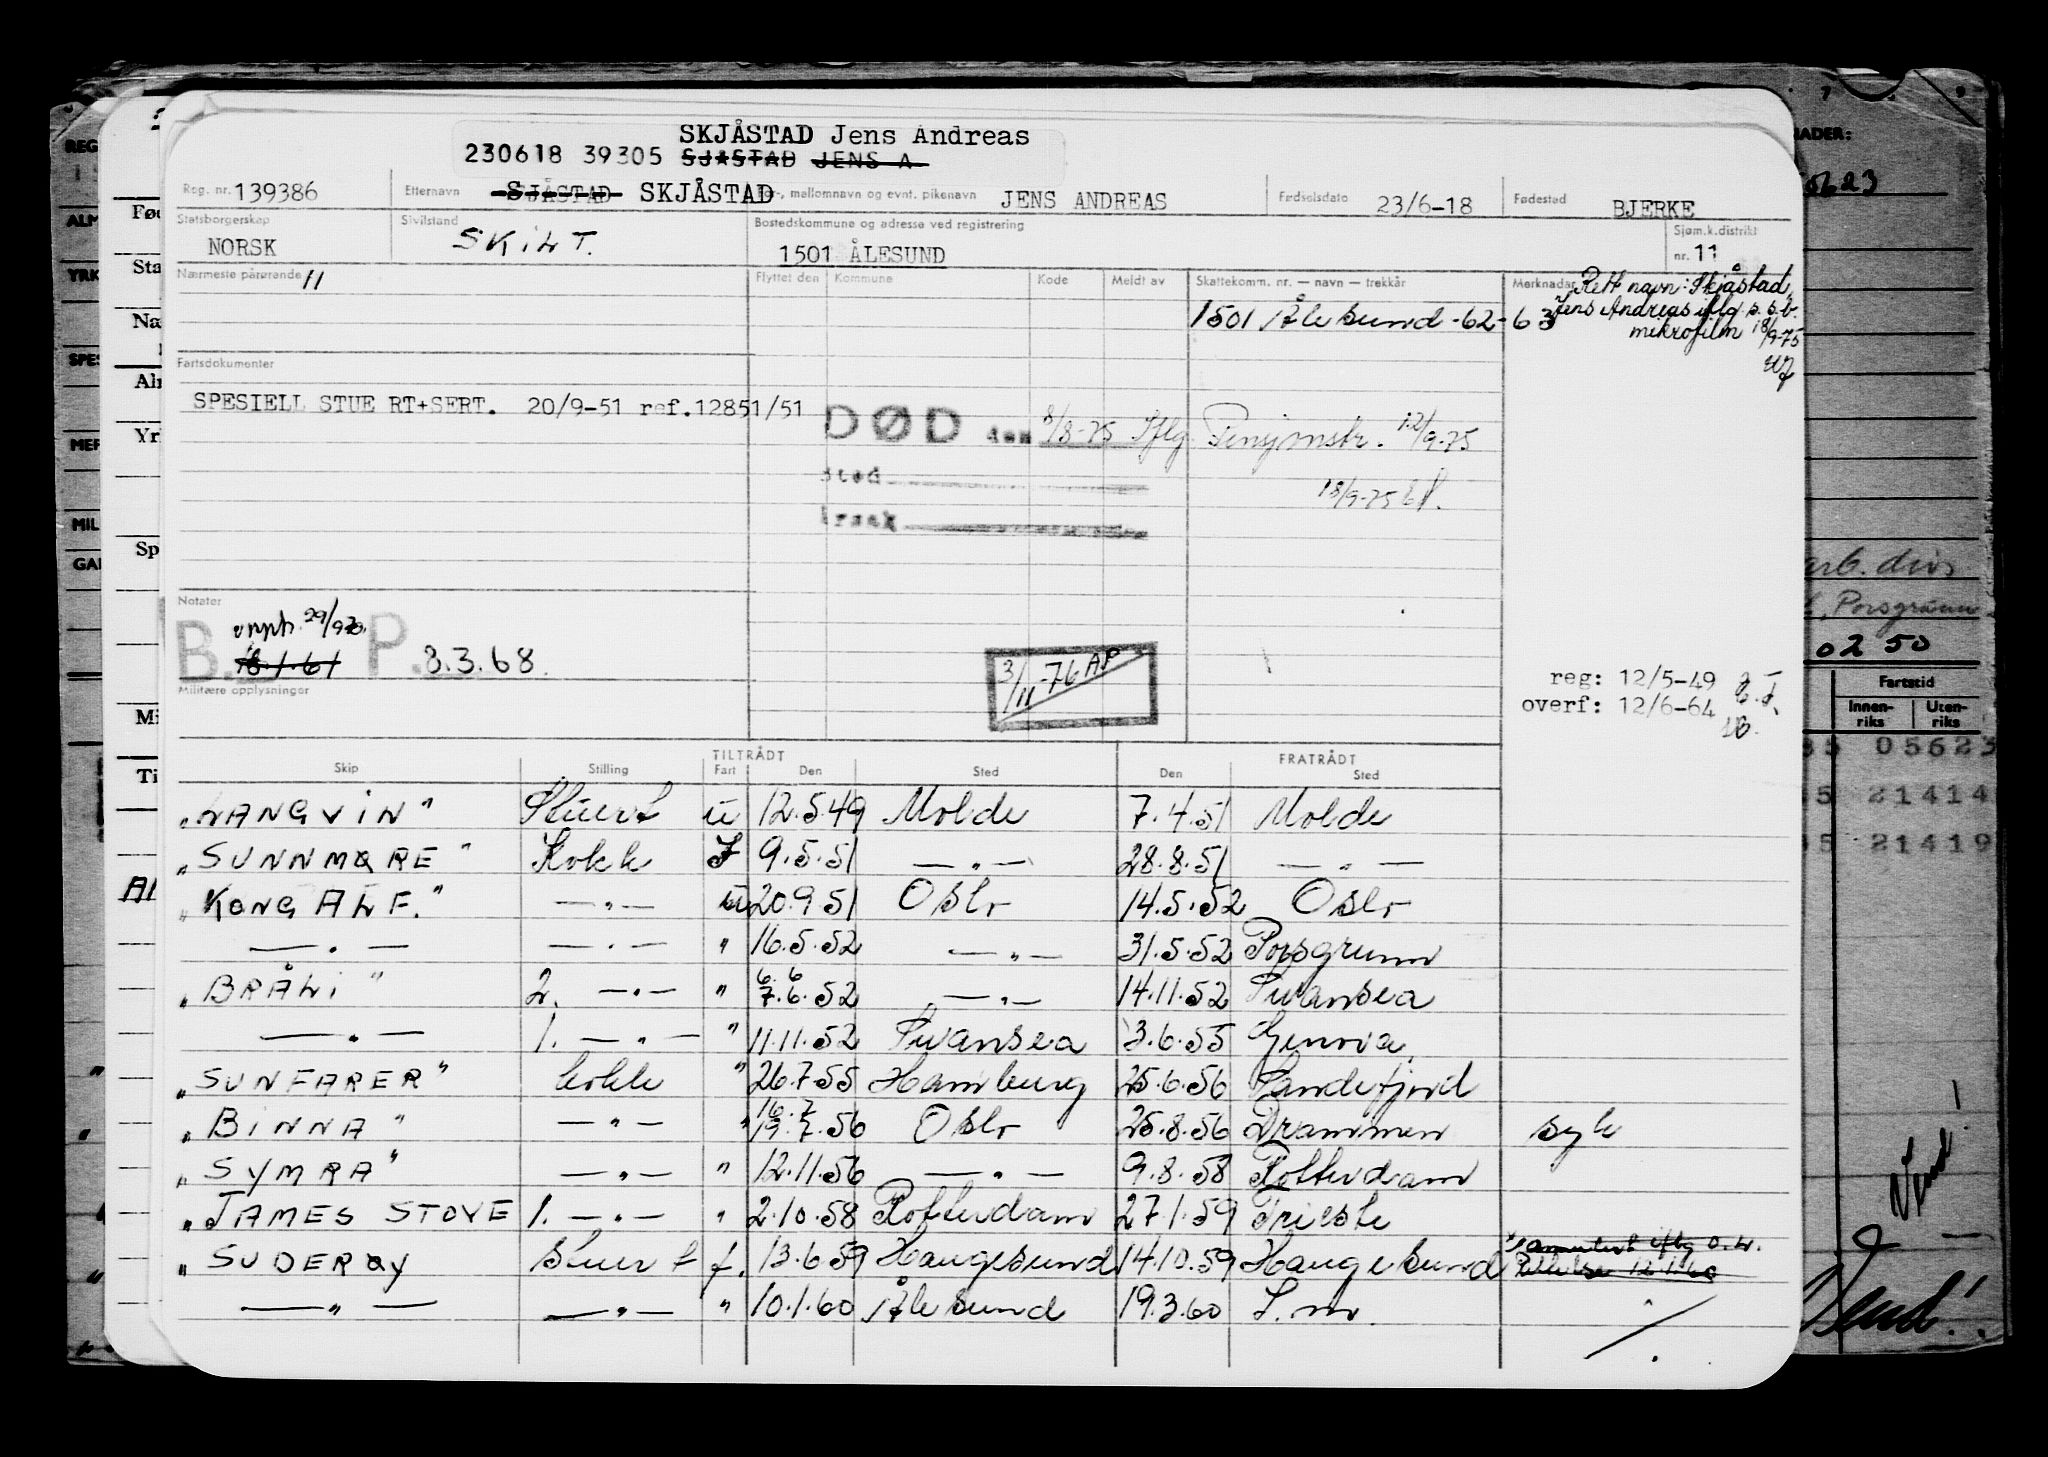 SKJÅSTAD Jens Andreas
230618 39305 SJÅSTAD JENS A
Reg. nr. 139386 Etternavn SJÅSTAD SKJÅSTAD For-, mellomnavn og evnt. pikenavn JENS ANDREAS Fødselsdato 23/6-18 Fødested BJERKE
Statsborgerskap NORSK Sivilstand SKILT. Bostedskommune og adresse ved registrering 1501 ÅLESUND Sjøm.k.distrikt nr. 11
Nærmeste pårørende 11 Flyttet den Kommune Kode Meldt av Skattekomm. nr. — navn — trekkår Merknader Rett navn: Skjåstad,
1501 Ålesund -62-63 Jens Andreas iflg s.s.b.
mikrofilm 18/9-75
Fartsdokumenter
SPESIELL STUERT+SERT. 20/9-51 ref.12851/51
DØD den 8/8-75 Iflg Pensjonstr. 12/9-75
Sted
18/9-75
Årsak
Notater
B. opph. 29/9 P. 8.3.68.
18.1.61
3/11-76 AP
Militære opplysninger
reg: 12/5-49
overf: 12/6-64
TILTRÅDT FRATRÅDT
Skip Stilling Fart Den Sted Den Sted
"LANGVIN" Stuert u 12.5.49 Molde 7.4.51 Molde
"SUNNMØRE" Kokk I 9.5.51 — " — 28.8.51 — " —
"KONG ALF." — " — u 20.9.51 Oslo 14.5.52 Oslo
— " — — " — " 16.5.52 — " — 31.5.52 Porsgrunn
"BRÅLI" 2. — " — " 6.6 7.6.52 — " — 14.11.52 Swansea
— " — 1. — " — " 11.11.52 Swansea 3.6.55 Genova
"SUNFARER" kokk " 26.7.55 Hamburg 25.6.56 Sandefjord
"BINNA" — " — " 16.7 19.7.56 Oslo 25.8.56 Drammen syk
"SYMRA" — " — " 12.11.56 — " — 9.8.58 Rotterdam
"JAMES STOVE 1. — " — " 2.10.58 Rotterdam 27.1.59 Trieste
"SUDERØY stuert f. 13.6.59 Haugesund 14.10.59 Haugesund
— " — — " — " 10.1.60 Ålesund 19.3.60 S.m.
REG
ALM
YRK
SPES
MER
MIL
GAR
Fød
Sta
Næ
Alm
Yr
Sp
Mi
Ti
NADER:
05623
arb. divs
Porsgrunn
02 50
Fartstid
Innen-riks Uten-riks
35 05623
35 21414
35 21419
Vend!
Vend!